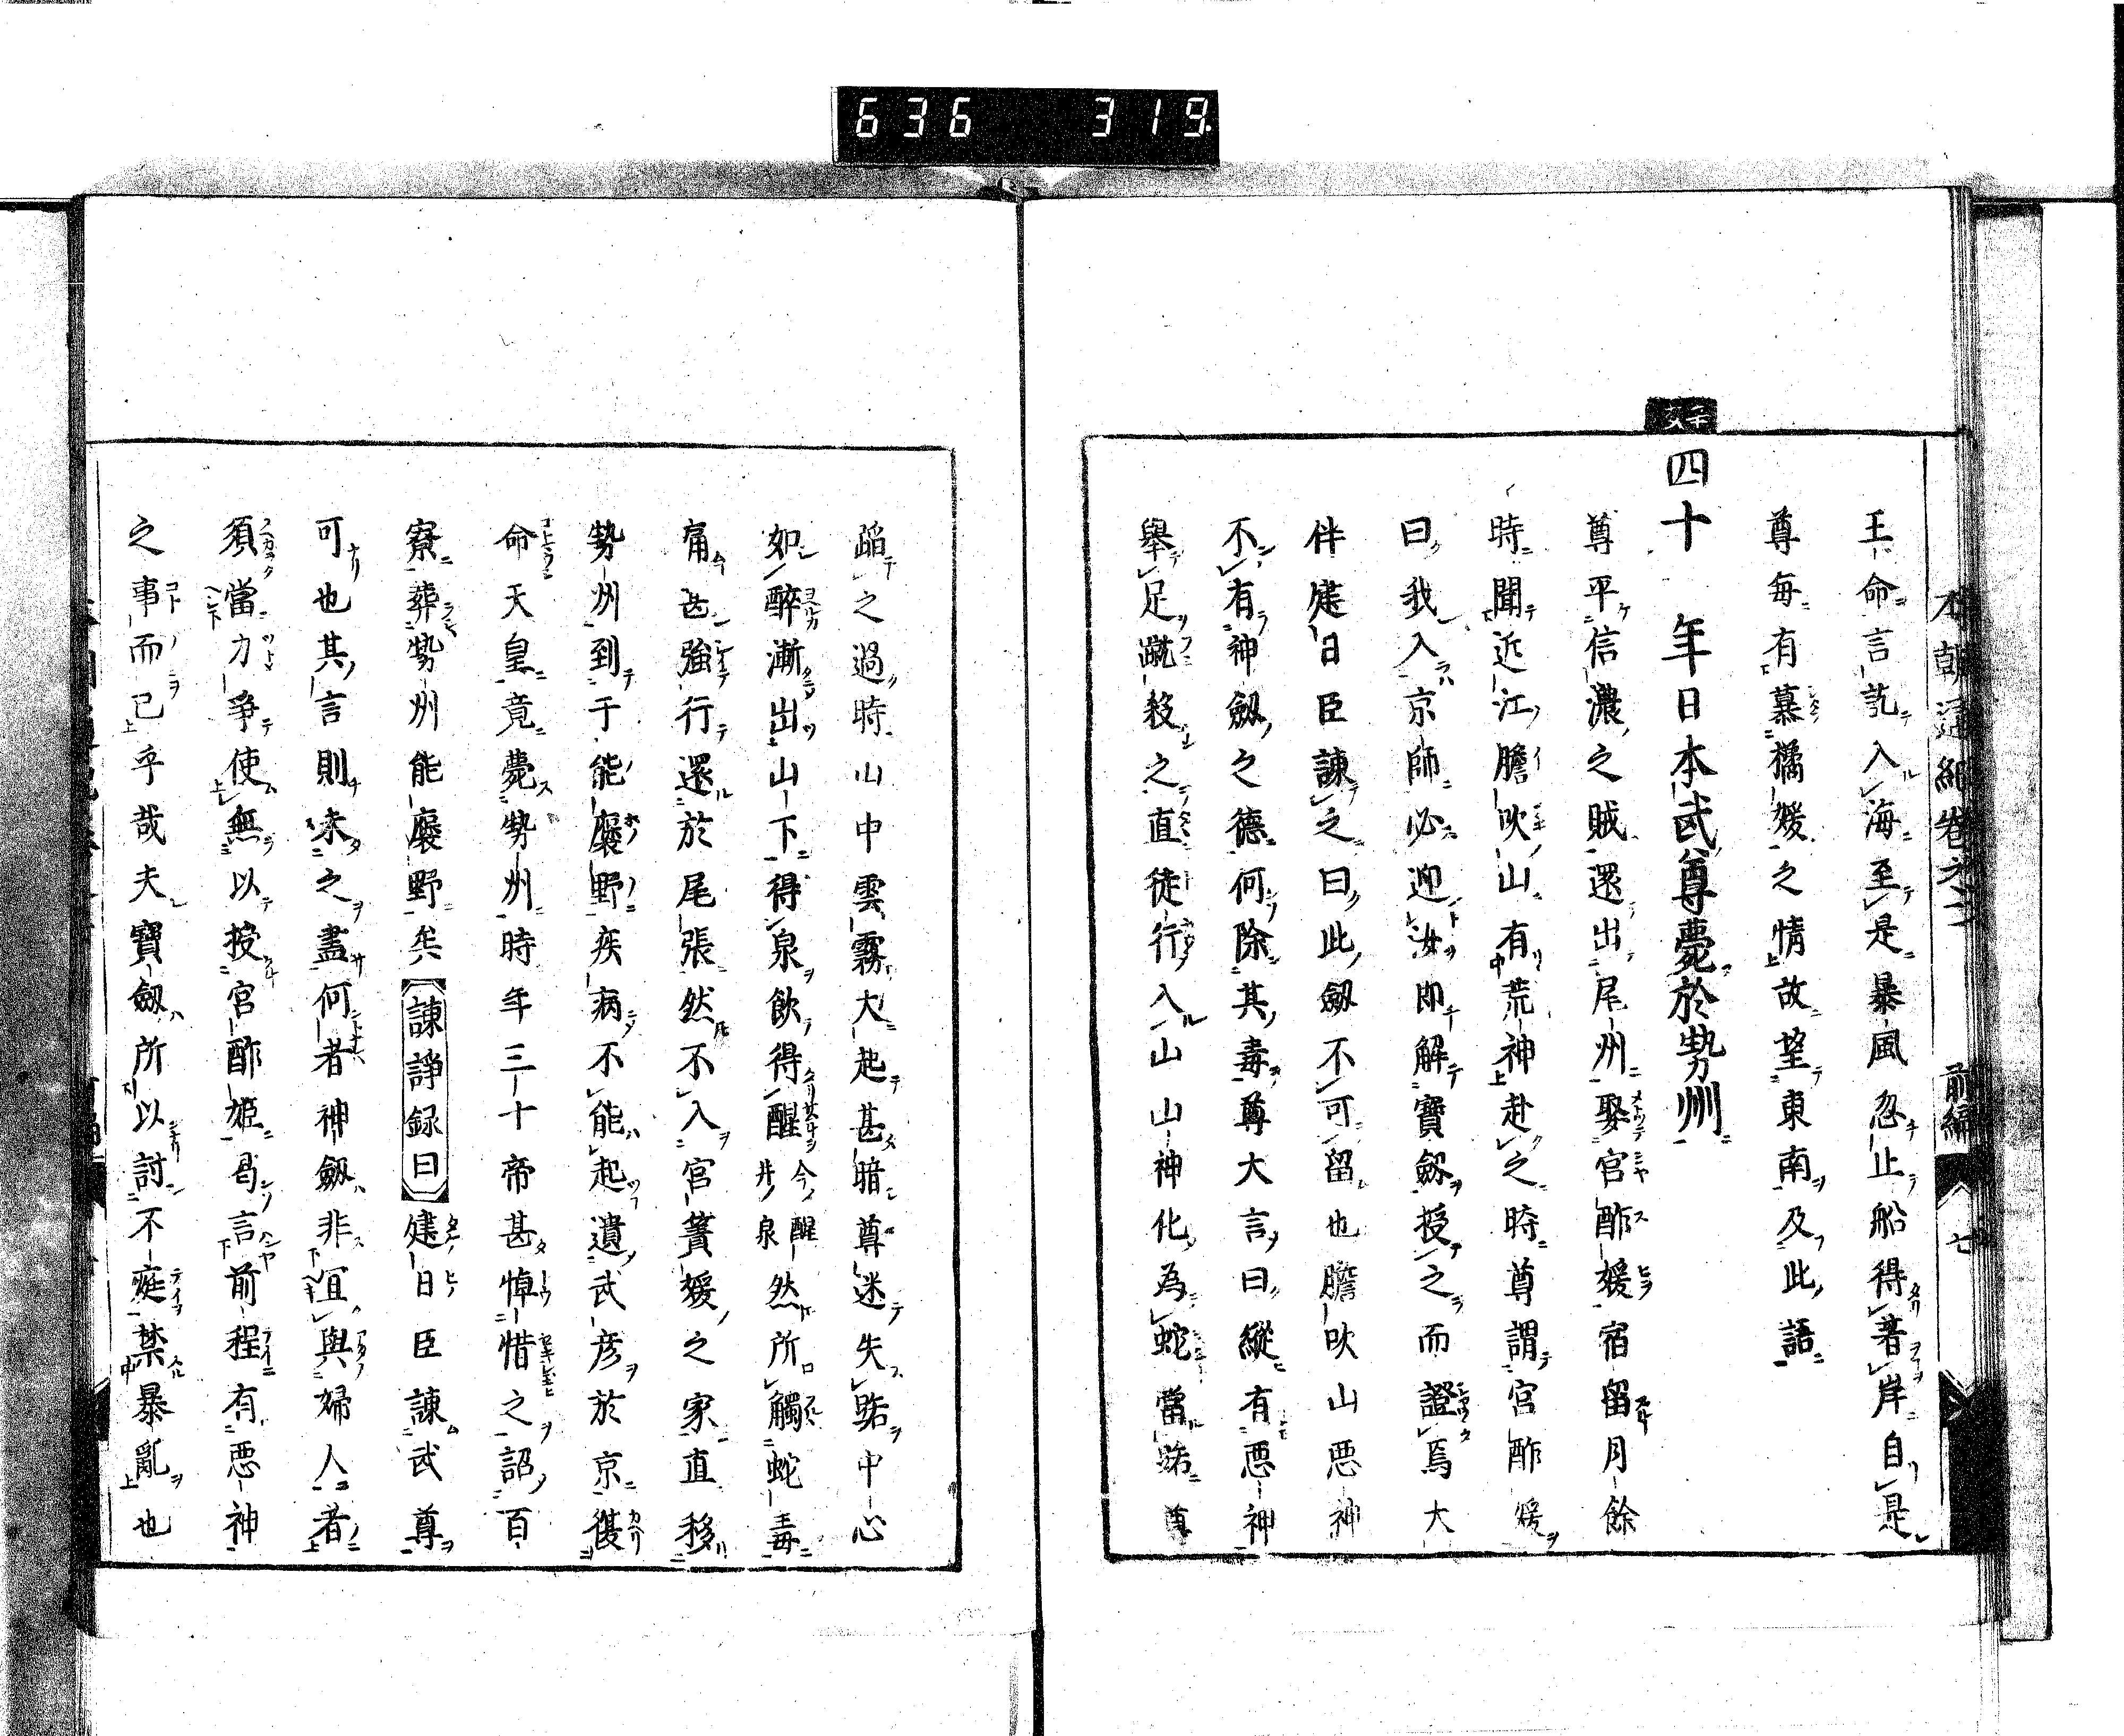 636 319
本朝通紀卷之二 前編 七
王命言訖入海至是暴風忽止船得著岸自是
尊每有慕橘媛之情故望東南及此語
四十年日本武尊薨於勢州
尊平信濃之賊還出尾州娶宮酢媛宿留月餘
時聞近江膽吹山有荒神赴之時尊謂宮酢媛
曰我入京師必迎汝即解寶劔授之而證焉大
伴建日臣諫之曰此劔不可留也膽吹山惡神
不有神劔之德何除其毒尊大言曰縱有惡神
舉足蹴殺之直徒行入山山神化為蛇當路尊
蹈之過時山中雲霧大起甚暗尊迷失路中心
如醉漸出山下得泉飲得醒今醒井泉然所觸蛇毒
痛甚強行還於尾張然不入宮簀媛之家直移
勢州到于能褒野疾病不能起遺武彦於京復
命天皇竟薨勢州時年三十帝甚悼惜之詔百
寮葬勢州能褒野矣諫諍録曰建日臣諫武尊
可也其言則未之盡何者神劔非宜與婦人者
須當力爭使無以授宮酢姫曷言前程有惡神
之事而已乎哉夫寶劔所以討不庭禁暴亂也